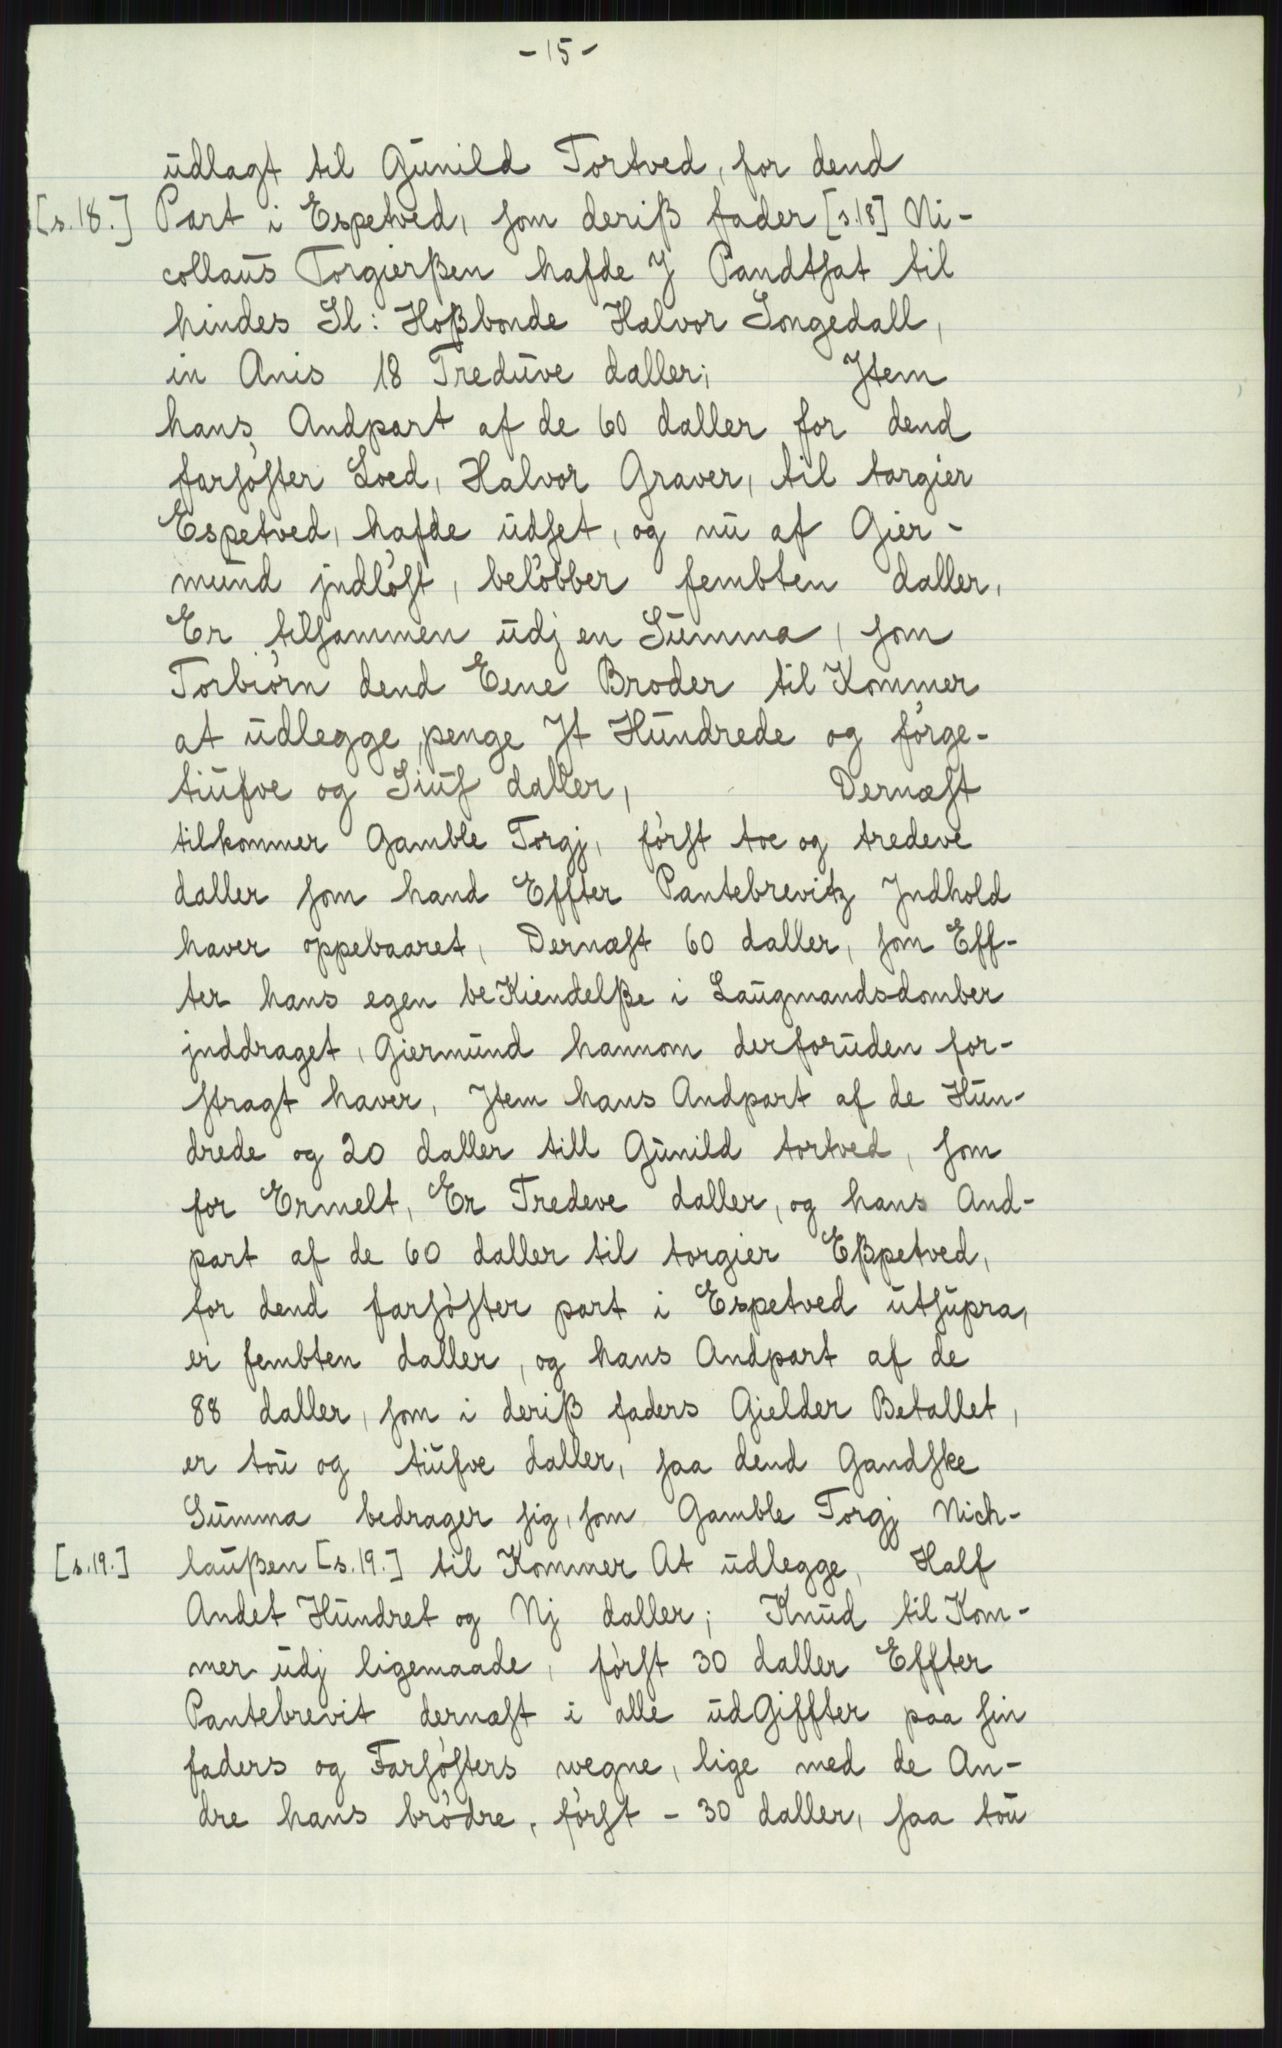 -15-
udlagt til Gunild Tortved, for dend
[s.18.] Part i Espetved, som deriß fader [s.18] Ni-
collaus Torgierßen hafde J Pandtsat til
hindes Sl: Hoßbonde Halvor Songedall,
in Anis 18 Treduve daller; Jtem
hans Andpart af de 60 daller for dend
farsøster Loed, Halvor Graver, til torgier
Espetved, hafde udset, og nu af Gier-
mund jndløst, beløbber fembten daller,
Er tilsammen udj en Summa, som
Torbiørn dend Eene Broder til Kommer
at udlegge, penge Jt Hundrede og førge-
tiufve og Siuf daller, Dernæst
tilkommer Gamble Torgj, først toe og tredeve
daller som hand Effter Pantebrevitz Jndhold
haver oppebaaret, Dernæst 60 daller, som Eff-
ter hans egen beKiendelße i Laugmandsdomber
jnddraget, Giermund hannom derforuden for-
stragt haver, Jtem hans Andpart af de Hun-
drede og 20 daller till Gunild tortved, som
for Ermelt, Er Tredeve daller, og hans And-
part af de 60 daller til torgier Eßpetved,
for dend farsøster part i Espetved utsupra,
er fembten daller, og hans Andpart af de
88 daller, som i deriß faders Gielder Betallet,
er tou og tiufve daller, saa dend Gandske
Summa bedrager sig, som Gamble Torgj Nich-
[s.19.] laußen [s.19.] til Kommer At udlegge, Half
Andet Hundret og Nj daller; Knud til Kom-
mer udj ligemaade, først 30 daller Effter
Pantebrevit dernæst i alle udGiffter paa sin
faders og Farsøsters wegne, lige med de An-
dre hans brødre, først - 30 daller, saa tou